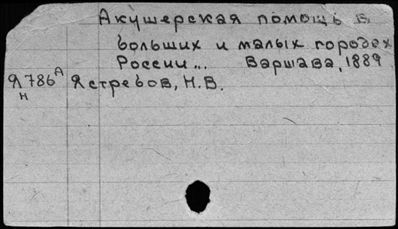 Акушерская помощь в
больших и малых городах
России... Варшава, 1889
Я786А Ястребов, Н.В.
н